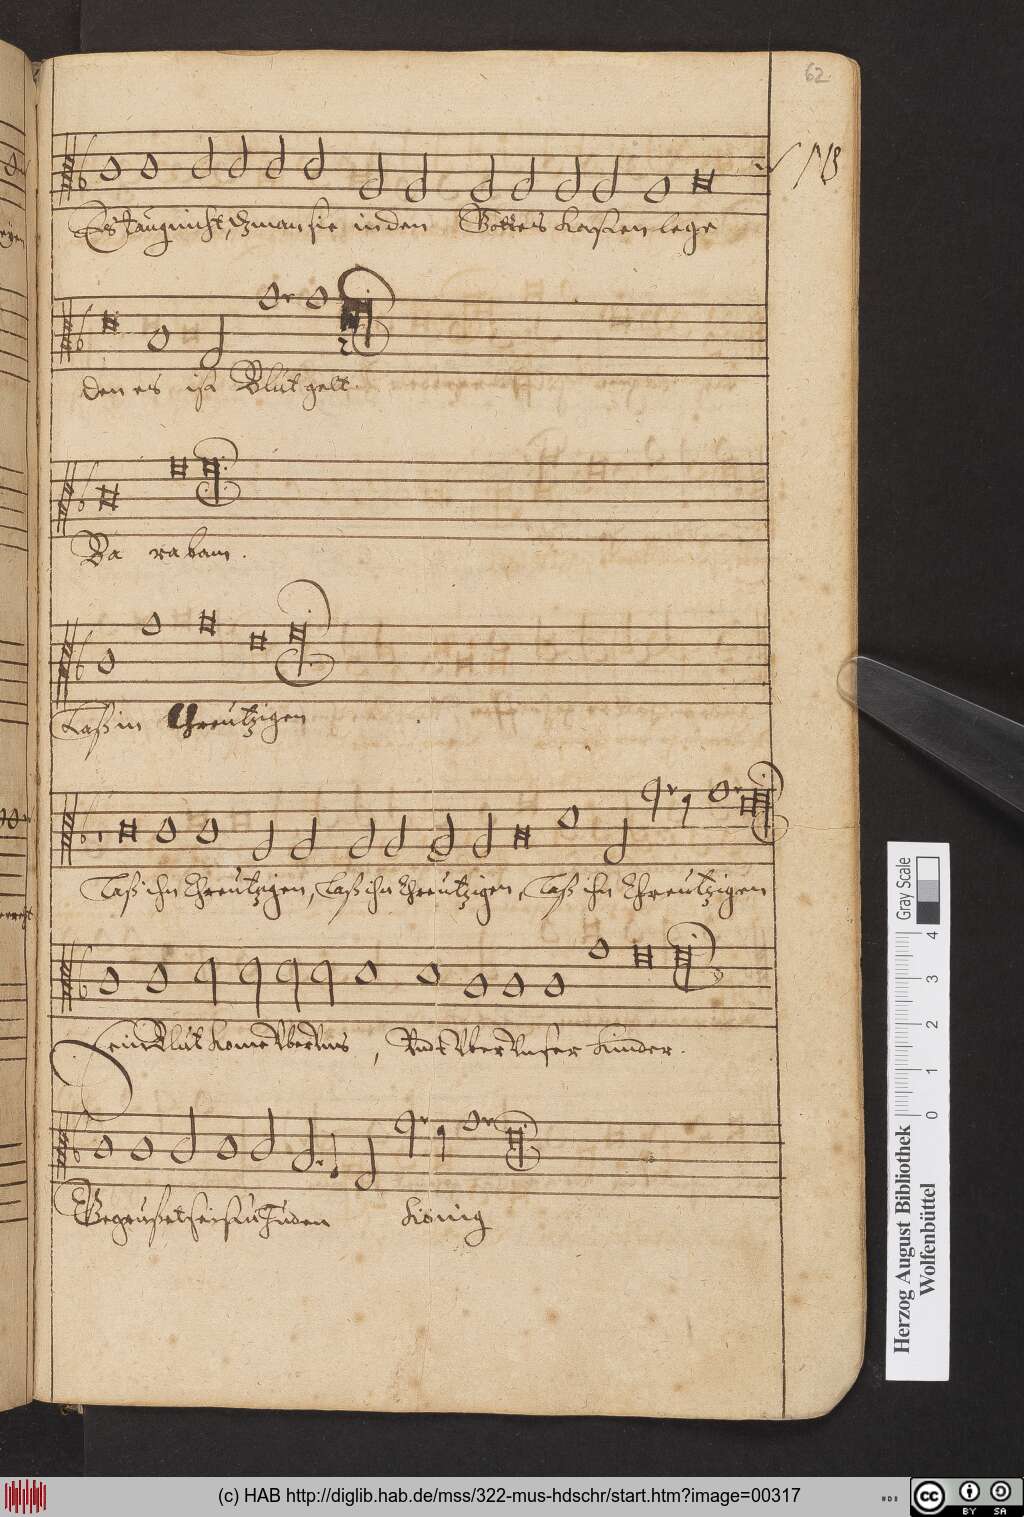 62
NB
Es taug nicht, dz man sie in den Gottes Kasten lege
den es ist Blut gelt
Ba ra bam.
Laß in Chreutzigen
Laß ihn Chreutzigen, Laß ihn Chreutzigen, Laß ihn Chreutzigen
Sein Blut Kome Vber Vns, Vndt Vber Vnser Kinder.
Gegrußet seistu Juden König
Gray Scale
4
3
2
1
0
Herzog August Bibliothek
Wolfenbüttel
(c) HAB http://diglib.hab.de/mss/322-mus-hdschr/start.htm?image=00317
cc
BY SA